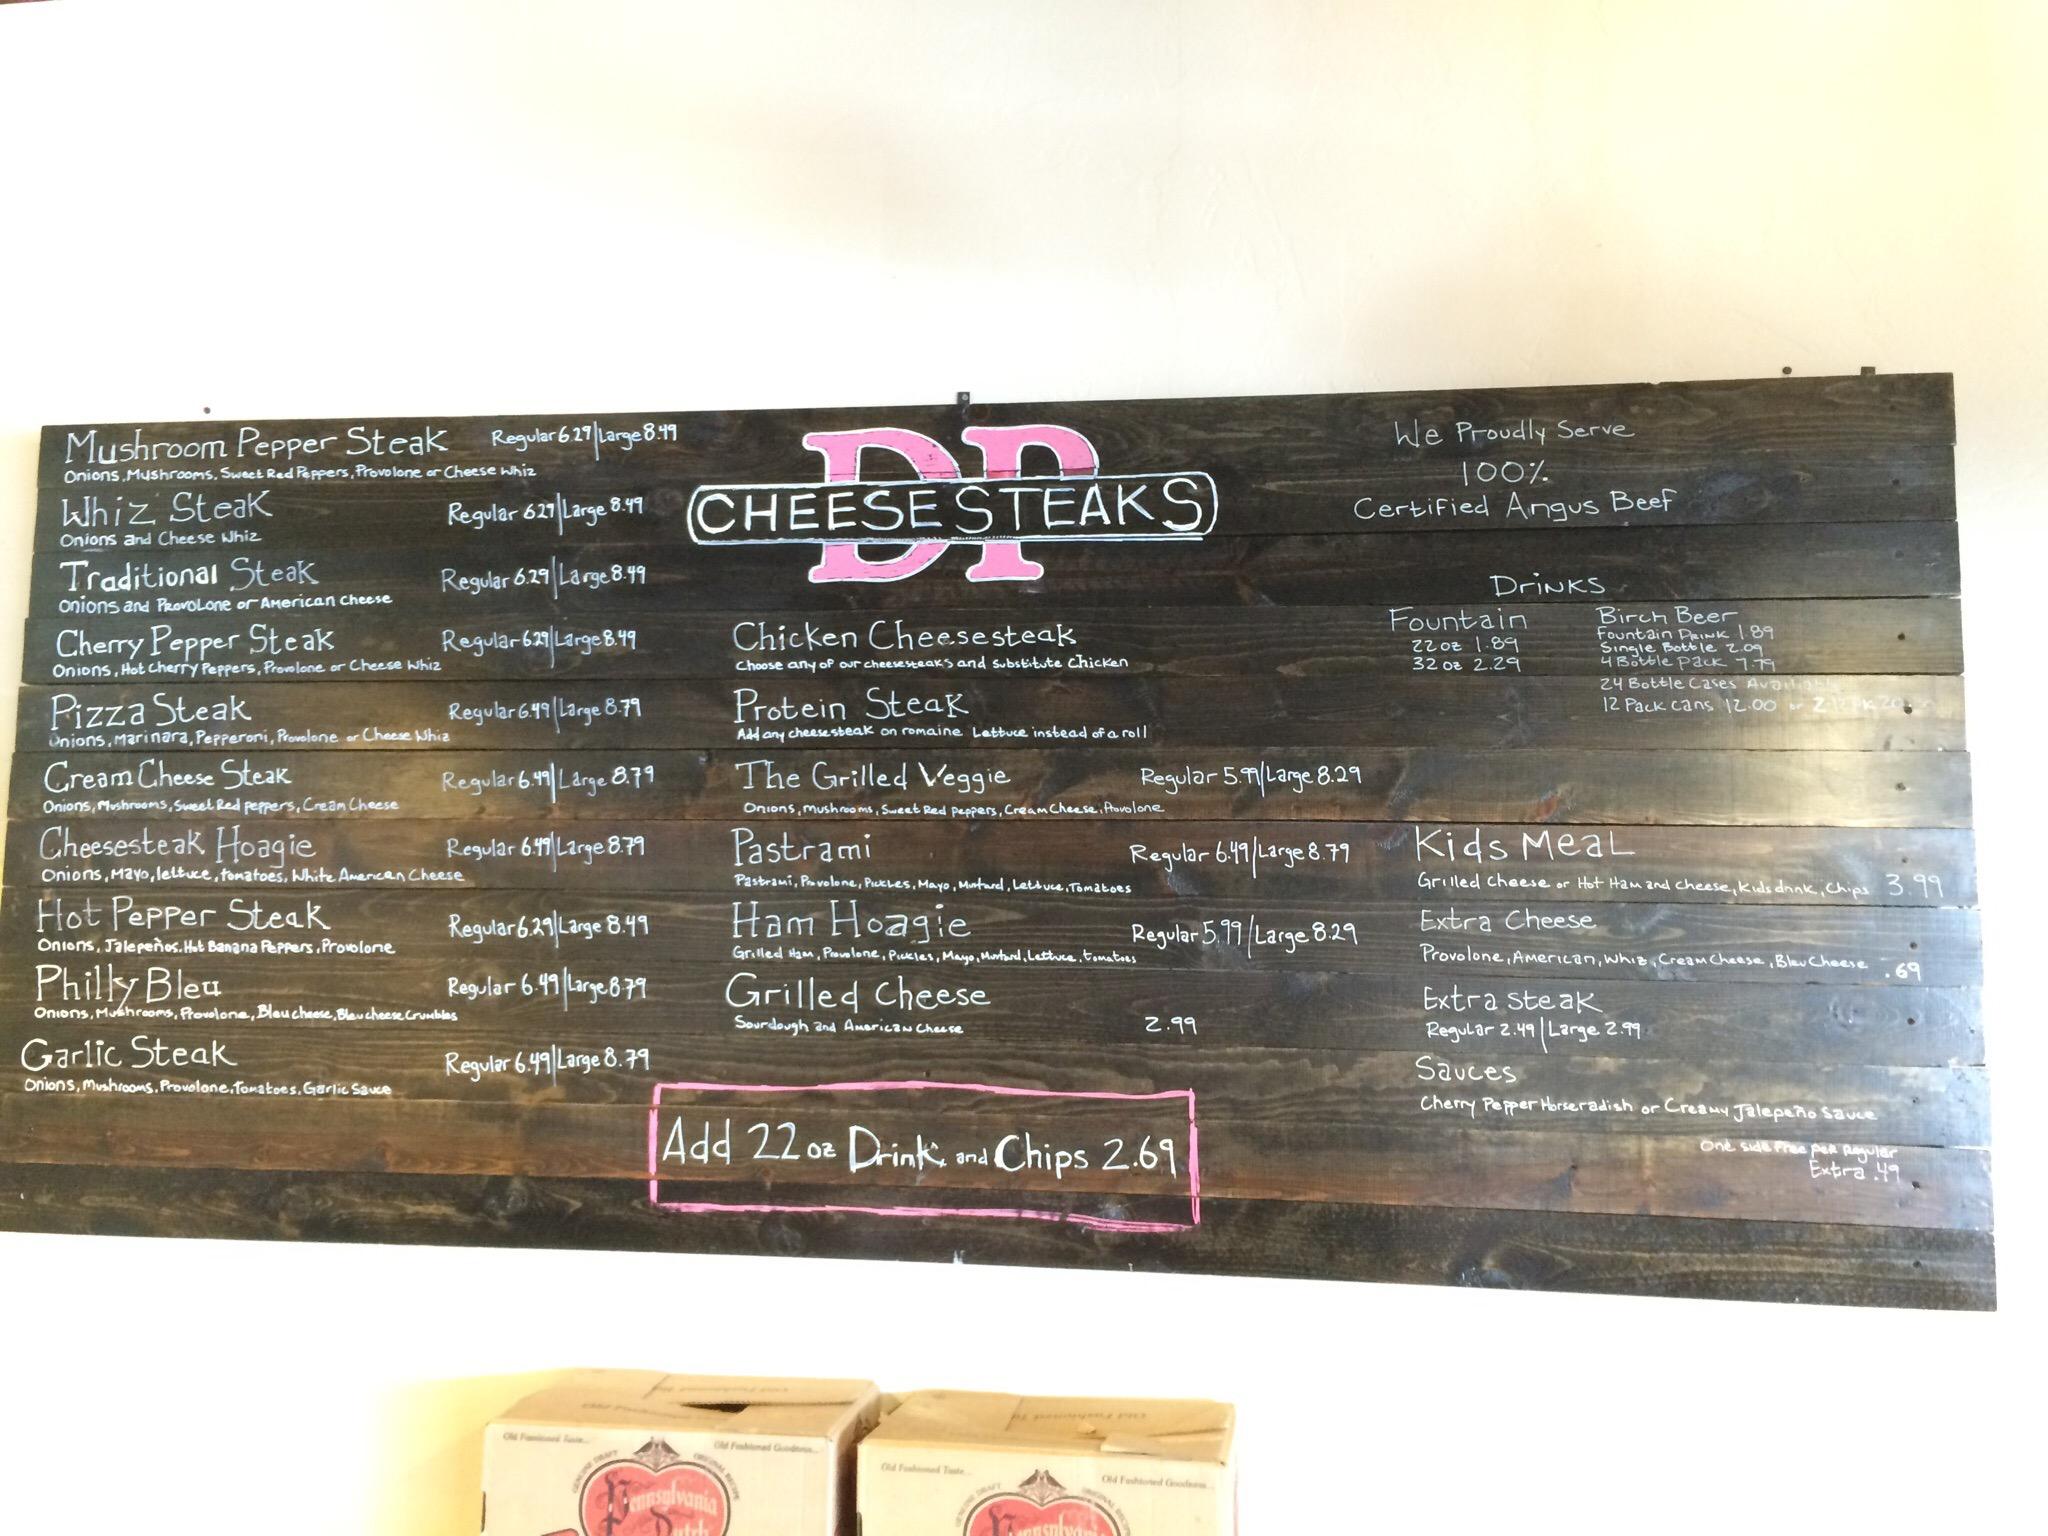 Mushroom Pepper Steak Regular 6.29 | Large 8.49
Onions, Mushrooms, Sweet Red Peppers, Provolone or Cheese Whiz
Whiz Steak Regular 6.29 | Large 8.49
Onions and Cheese Whiz
Traditional Steak Regular 6.29 | Large 8.49
Onions and Provolone or American Cheese
Cherry Pepper Steak Regular 6.29 | Large 8.49
Onions, Hot Cherry Peppers, Provolone or Cheese Whiz
Pizza Steak Regular 6.49 | Large 8.79
Onions, Marinara, Pepperoni, Provolone or Cheese Whiz
Cream Cheese Steak Regular 6.49 | Large 8.79
Onions, Mushrooms, Sweet Red peppers, Cream Cheese
Cheesesteak Hoagie Regular 6.49 | Large 8.79
Onions, Mayo, lettuce, tomatoes, White American Cheese
Hot Pepper Steak Regular 6.29 | Large 8.49
Onions, Jalepeños, Hot Banana Peppers, Provolone
Philly Bleu Regular 6.49 | Large 8.79
Onions, Mushrooms, Provolone, Bleu cheese, Bleu cheese Crumbles
Garlic Steak Regular 6.49 | Large 8.79
Onions, Mushrooms, Provolone, Tomatoes, Garlic Sauce
DP
CHEESESTEAKS
Chicken Cheesesteak
Choose any of our cheesesteaks and substitute Chicken
Protein Steak
Add any cheesesteak on romaine Lettuce instead of a roll
The Grilled Veggie Regular 5.99 | Large 8.29
Onions, mushrooms, Sweet Red peppers, Cream Cheese, Provolone
Pastrami Regular 6.49 | Large 8.79
Pastrami, Provolone, Pickles, Mayo, Mustard, Lettuce, Tomatoes
Ham Hoagie Regular 5.99 | Large 8.29
Grilled Ham, Provolone, Pickles, Mayo, Mustard, Lettuce, tomatoes
Grilled Cheese
Sourdough and American Cheese 2.99
Add 22oz Drink and Chips 2.69
We Proudly Serve
100%
Certified Angus Beef
Drinks
Fountain
22oz 1.89
32oz 2.29
Birch Beer
Fountain Drink 1.89
Single Bottle 2.09
4 Bottle Pack 7.79
24 Bottle Cases Available
12 Pack cans 12.00 or
Kids Meal
Grilled Cheese or Hot Ham and Cheese, Kids drink, Chips 3.99
Extra Cheese
Provolone, American, Whiz, Cream Cheese, Bleu Cheese .69
Extra Steak
Regular 2.49 | Large 2.99
Sauces
Cherry Pepper Horseradish or Creamy Jalepeño Sauce
One side Free per Regular
Extra .49
Old Fashioned Taste...
Old Fashioned Goodness...
GENUINE DRAFT ORIGINAL RECIPE
Pennsylvania
Dutch
Old Fashioned Taste...
Old Fashioned Goodness...
Pennsylvania